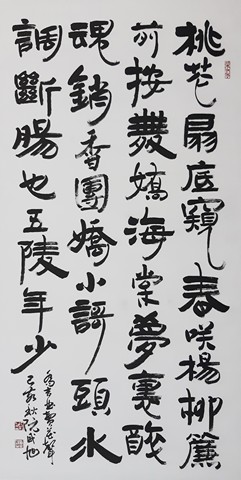 桃花扇底窺春咲楊柳簾
前按舞嬌海棠夢裏醉
魂銷香團嬌小謌頭水
調斷腸也五陵年少
喬吉曲賣花聲
己亥秋